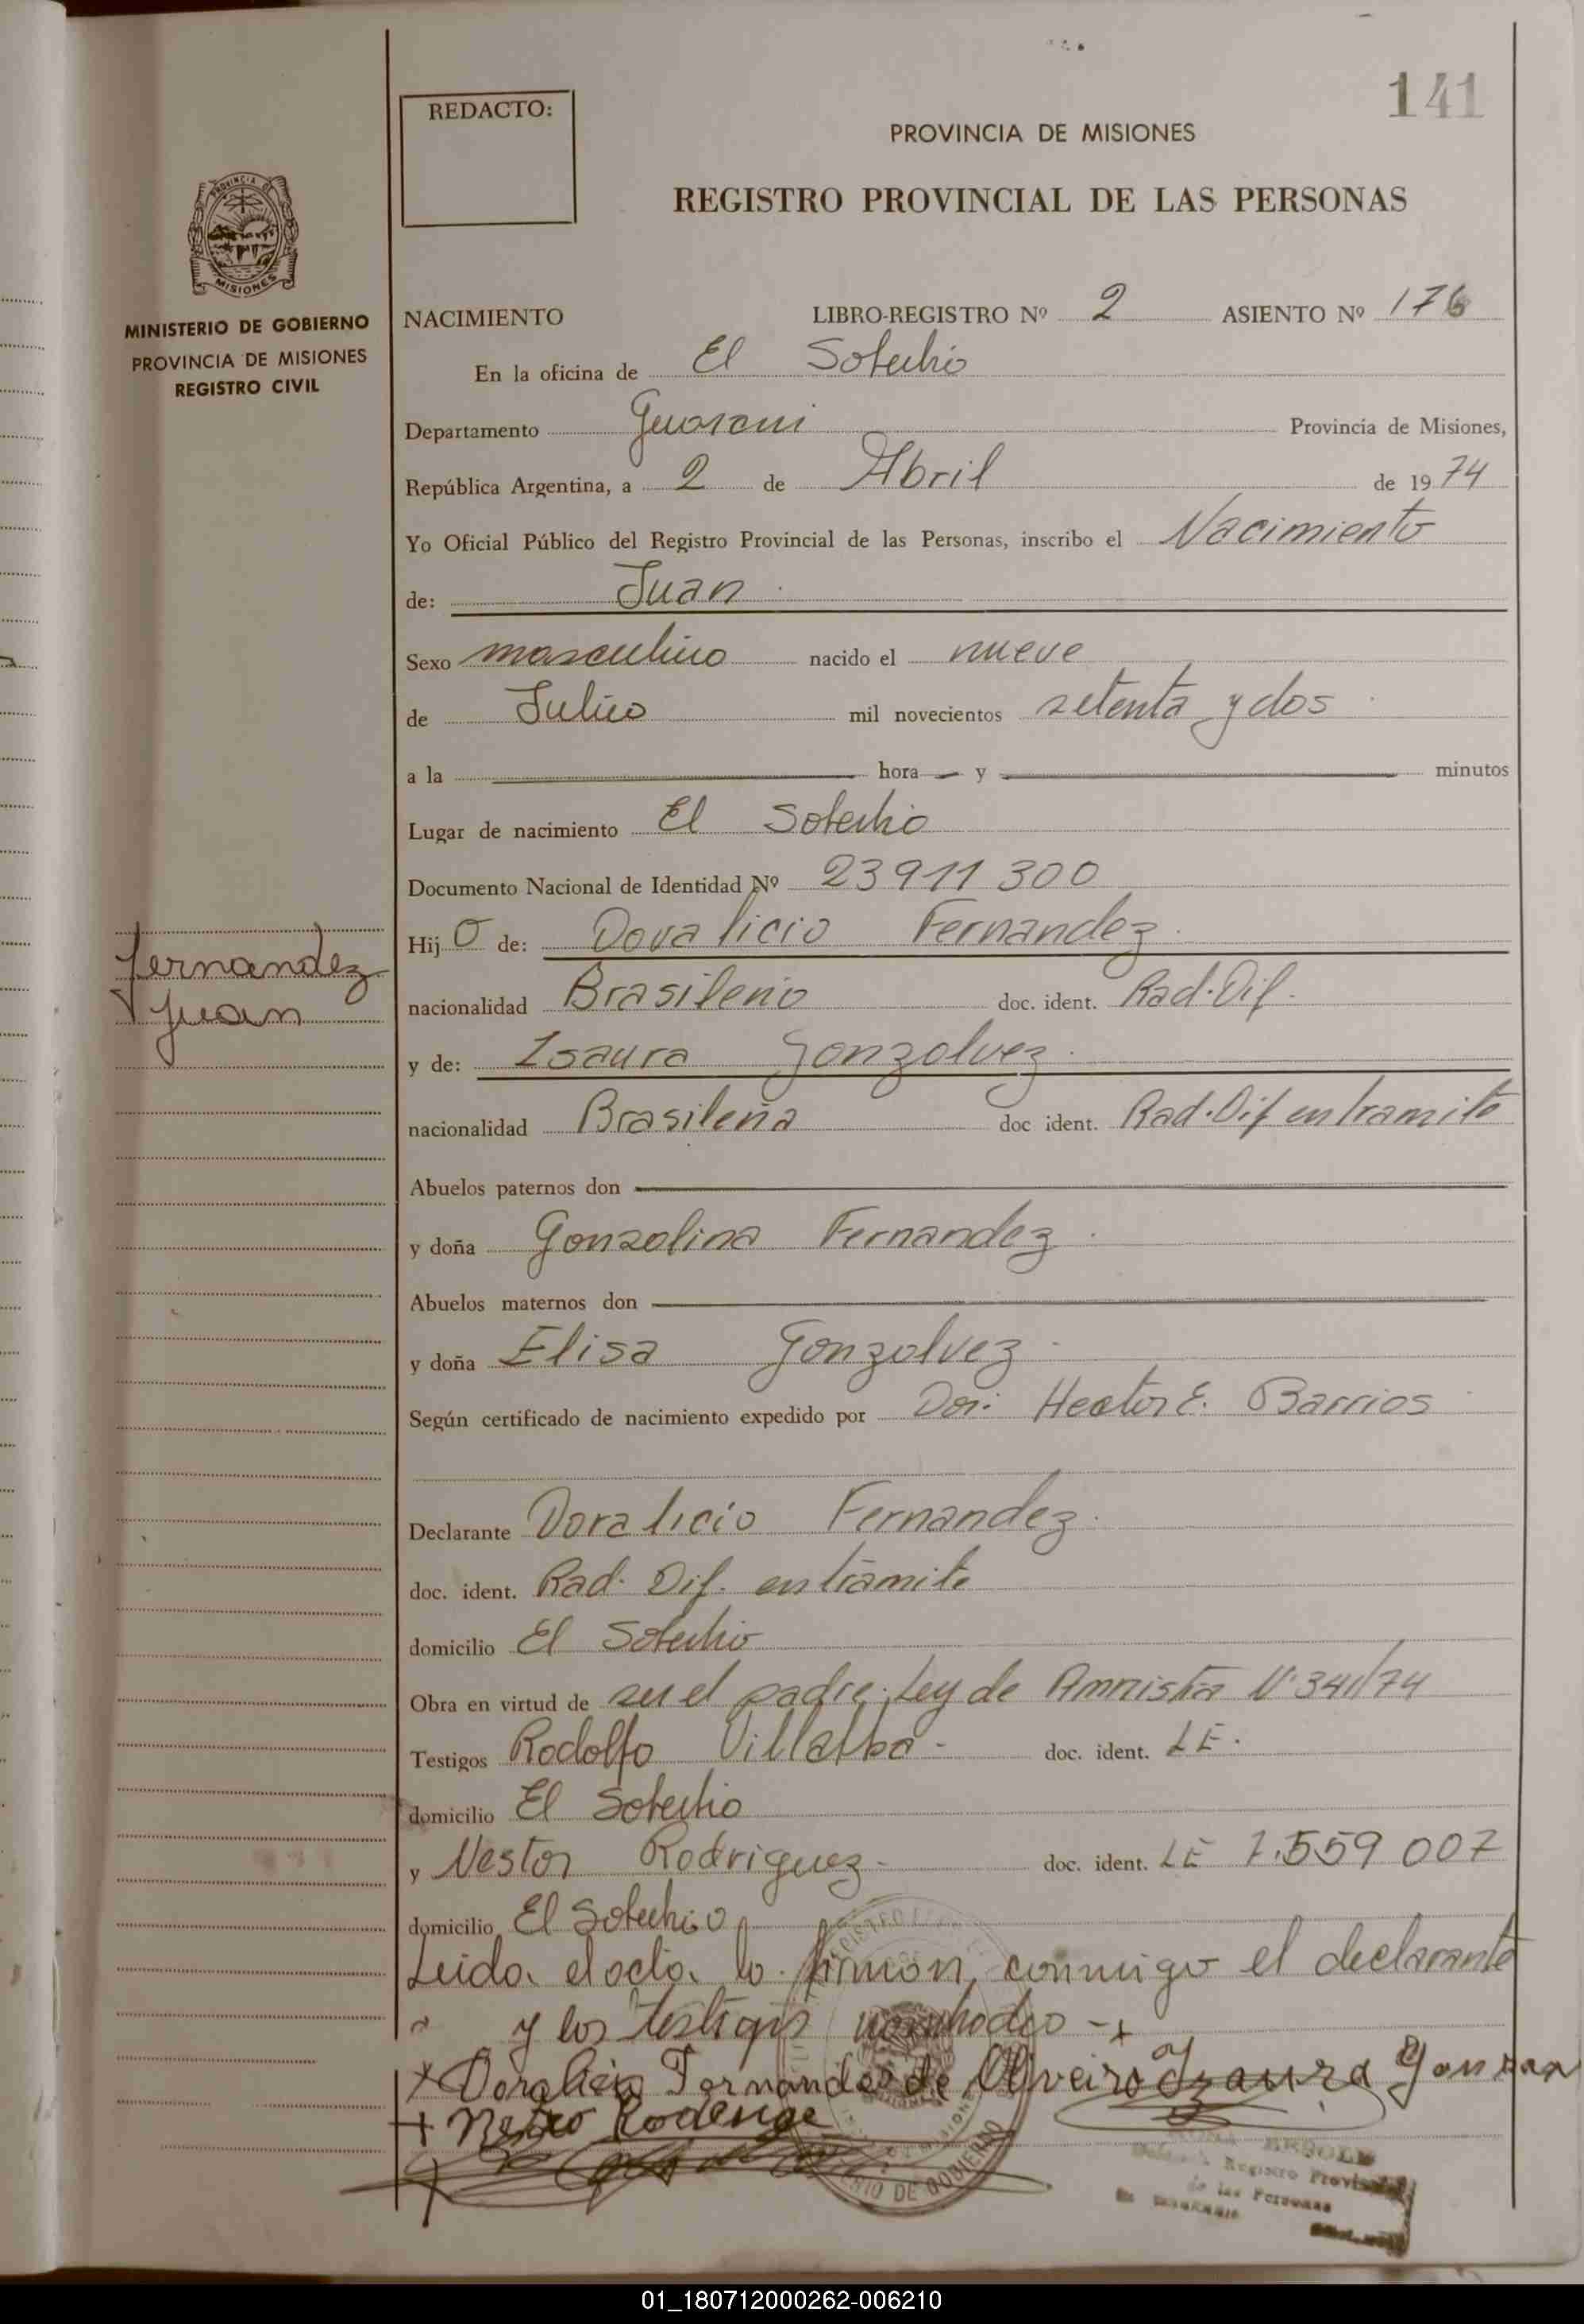 141
REDACTO:
PROVINCIA DE MISIONES
REGISTRO PROVINCIAL DE LAS PERSONAS
PROVINCIA DE
MISIONES
MINISTERIO DE GOBIERNO
PROVINCIA DE MISIONES
REGISTRO CIVIL
NACIMIENTO LIBRO-REGISTRO Nº 2 ASIENTO Nº 176
En la oficina de El Soberbio
Departamento Guarani Provincia de Misiones,
República Argentina, a 2 de Abril de 1974
Yo Oficial Público del Registro Provincial de las Personas, inscribo el Nacimiento
de: Juan
Sexo masculino nacido el nueve
de Julio mil novecientos setenta y dos
a la hora y minutos
Lugar de nacimiento El Soberbio
Documento Nacional de Identidad Nº 23911300
Hijo de: Doralicio Fernandez
Fernandez
Juan
nacionalidad Brasileño doc. ident. Rad. Dif.
y de: Isaura Gonzalvez
nacionalidad Brasileña doc ident. Rad. Dif en tramite
Abuelos paternos don
y doña Gonzalina Fernandez
Abuelos maternos don
y doña Elisa Gonzalvez
Según certificado de nacimiento expedido por Dor: Hector E. Barrios
Declarante Doralicio Fernandez
doc. ident. Rad. Dif. en trámite
domicilio El Soberbio
Obra en virtud de ser el padre. Ley de Amnistia Nº 341/74
Testigos Rodolfo Villalba doc. ident. LE.
domicilio El Soberbio
y Nestor Rodriguez doc. ident. LE 7.559 007
domicilio El Soberbio
Leida el acta la firman conmigo el declarante
y los testigos
Doralicio Fernandes de Oliveira Izaura Gonzan
DE GOBIERNO
Registro Provincial
de las Personas
01_180712000262-006210